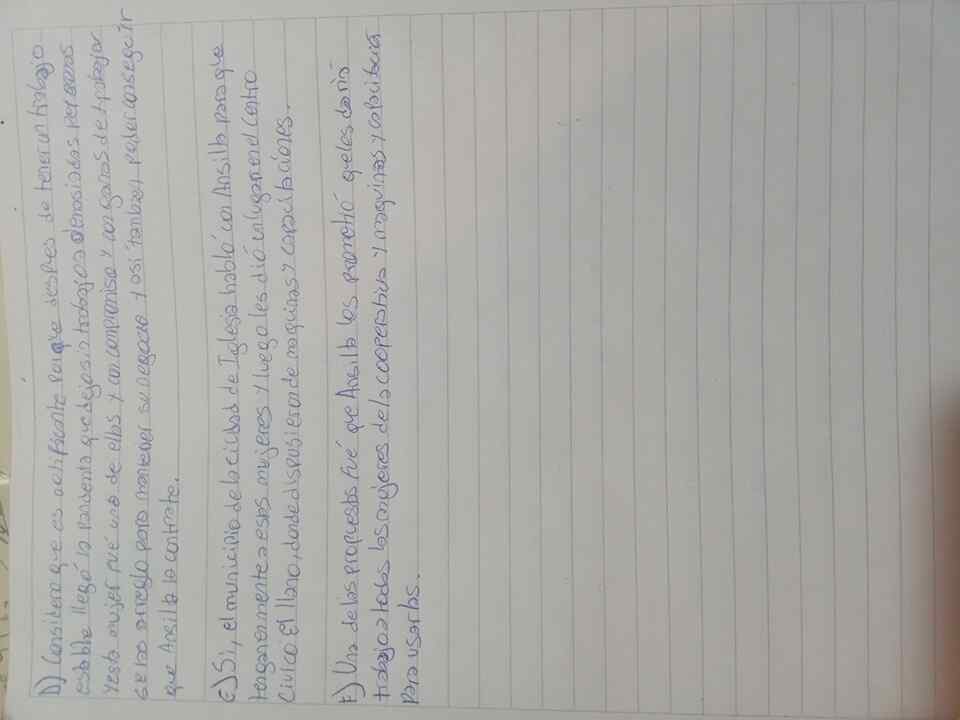 D) Considera que es edificante porque despúes de tener un trabajo
estable llegó la pandemia que dejo sin trabajo a demasiadas personas
y esta mujer fué una de ellas y con compromiso y con ganas de trabajar
se las arregló para mantener su negocio y asi tambien poder conseguir
que Ansilta la contrate.
E) Si, el municipio de la ciudad de Iglesia habló con Ansilta para que
tengan en mente a esas mujeres y luego les dió un lugar en el Centro
Civico El llano, donde dispusieron de maquinas y capacitaciones.
F) Una de las propuestas fué que Ansilta les prometió que les daria
trabajo a todas las mujeres de la cooperativa y maquinas y
para usarlas.